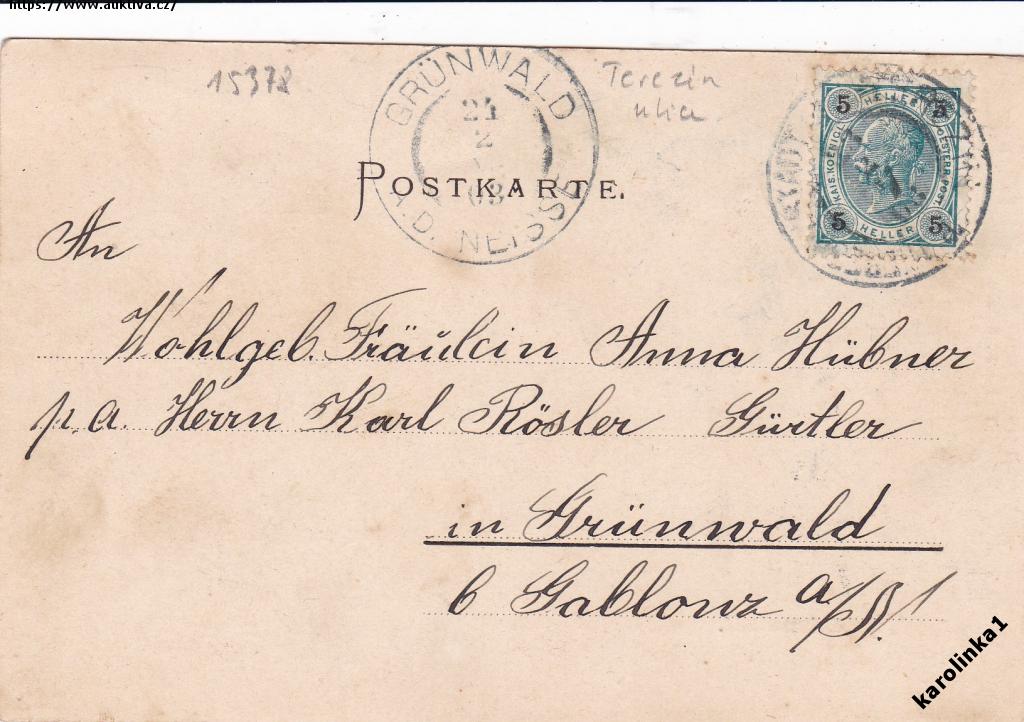 https://www.auktiva.cz/
15378
Terezín
ulice
GRÜNWALD
24
2
03
A.D. NEISSE
5 HELLER 5
KAIS. KOENIGL. OESTERR. POST.
5 HELLER 5
POSTKARTE.
An
Wohlgeb. Fräulein Anna Hübner
p. a. Herrn Karl Rösler Gürtler
in Grünwald
b Gablonz a/N!
karolinka1